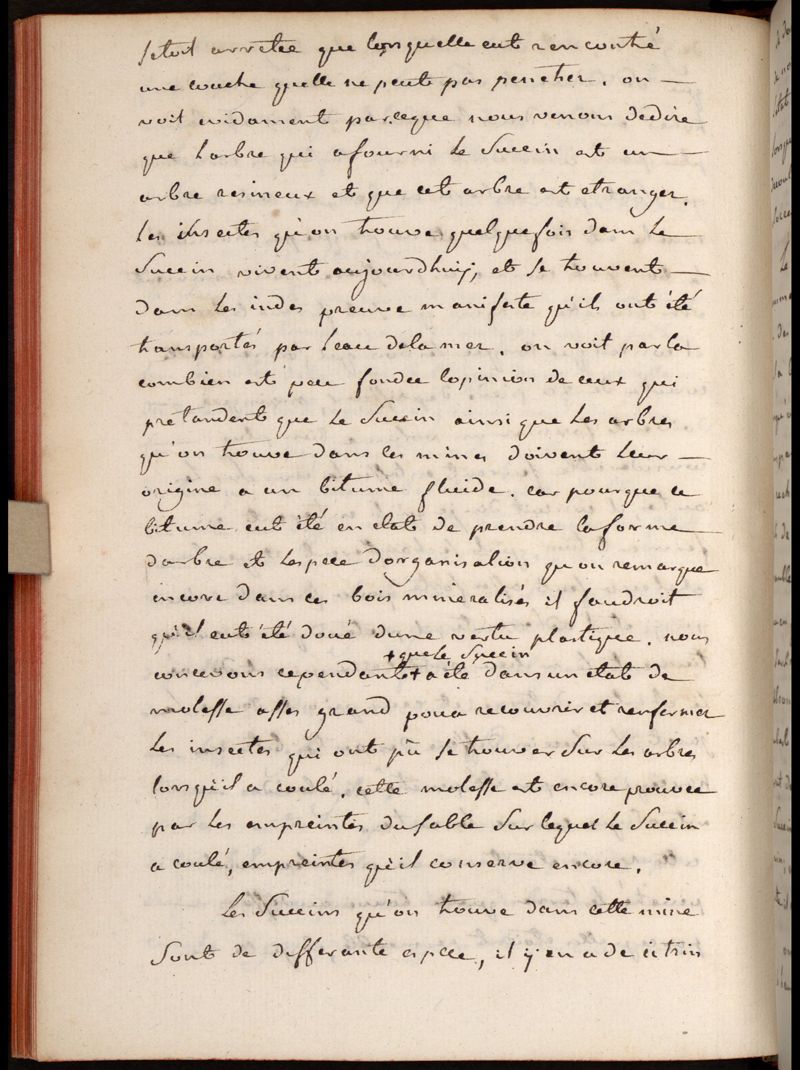 setoit arretée que lorsquelle eut rencontré
une couche quelle ne peut pas penetrer. on —
voit evidament parceque nous venons dedire
que l'arbre qui a fourni le Succin est un —
arbre resineux et que cet arbre est etranger.
les insectes qu'on trouve quelquefois dans le
Succin vivent aujourdhuy, et se trouvent —
dans les indes preuve manifeste qu'ils ont été
transportés par leau dela mer. on voit parla
combien est peu fondée lopinion de ceux qui
pretandent que le Succin ainsi que les arbres
qu'on trouve dans les mines doivent leur —
origine a un bitume fluide. car pourque ce
bitume eut été en etat de prendre la forme
darbre et lespece dorganisation qu'on remarque
encore dans ces bois mineralisés il faudroit
qu'il eut été doué dune vertu plastique. nous
+ que le Succin
concevons cependant + a été dans un etat de
molesse asses grand pour recouvrir et renfermer
les insectes qui ont pû se trouver sur les arbres
lorsqu'il a coulé. cette molesse est encore prouvée
par les empreintes du sable sur lequel le Succin
a coulé, empreintes qu'il conserve encore.
Les Succins qu'on trouve dans cette mine
sont de differante espece, il y en a de citrin